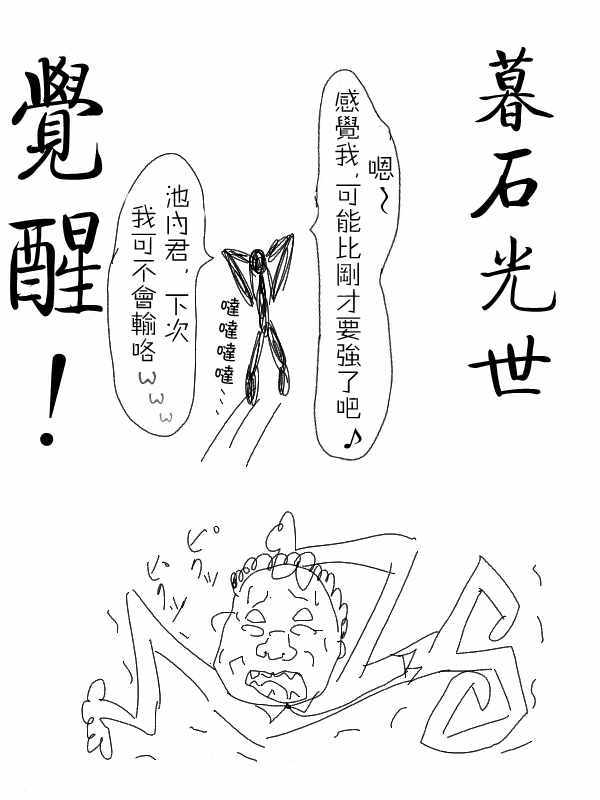 暮石光世
嗯~
感覺我，可能比剛才要強了吧♪
池內君，下次
我可不會輸咯ωωω
噠噠噠噠…
覺醒！
ピクッ
ピクッ